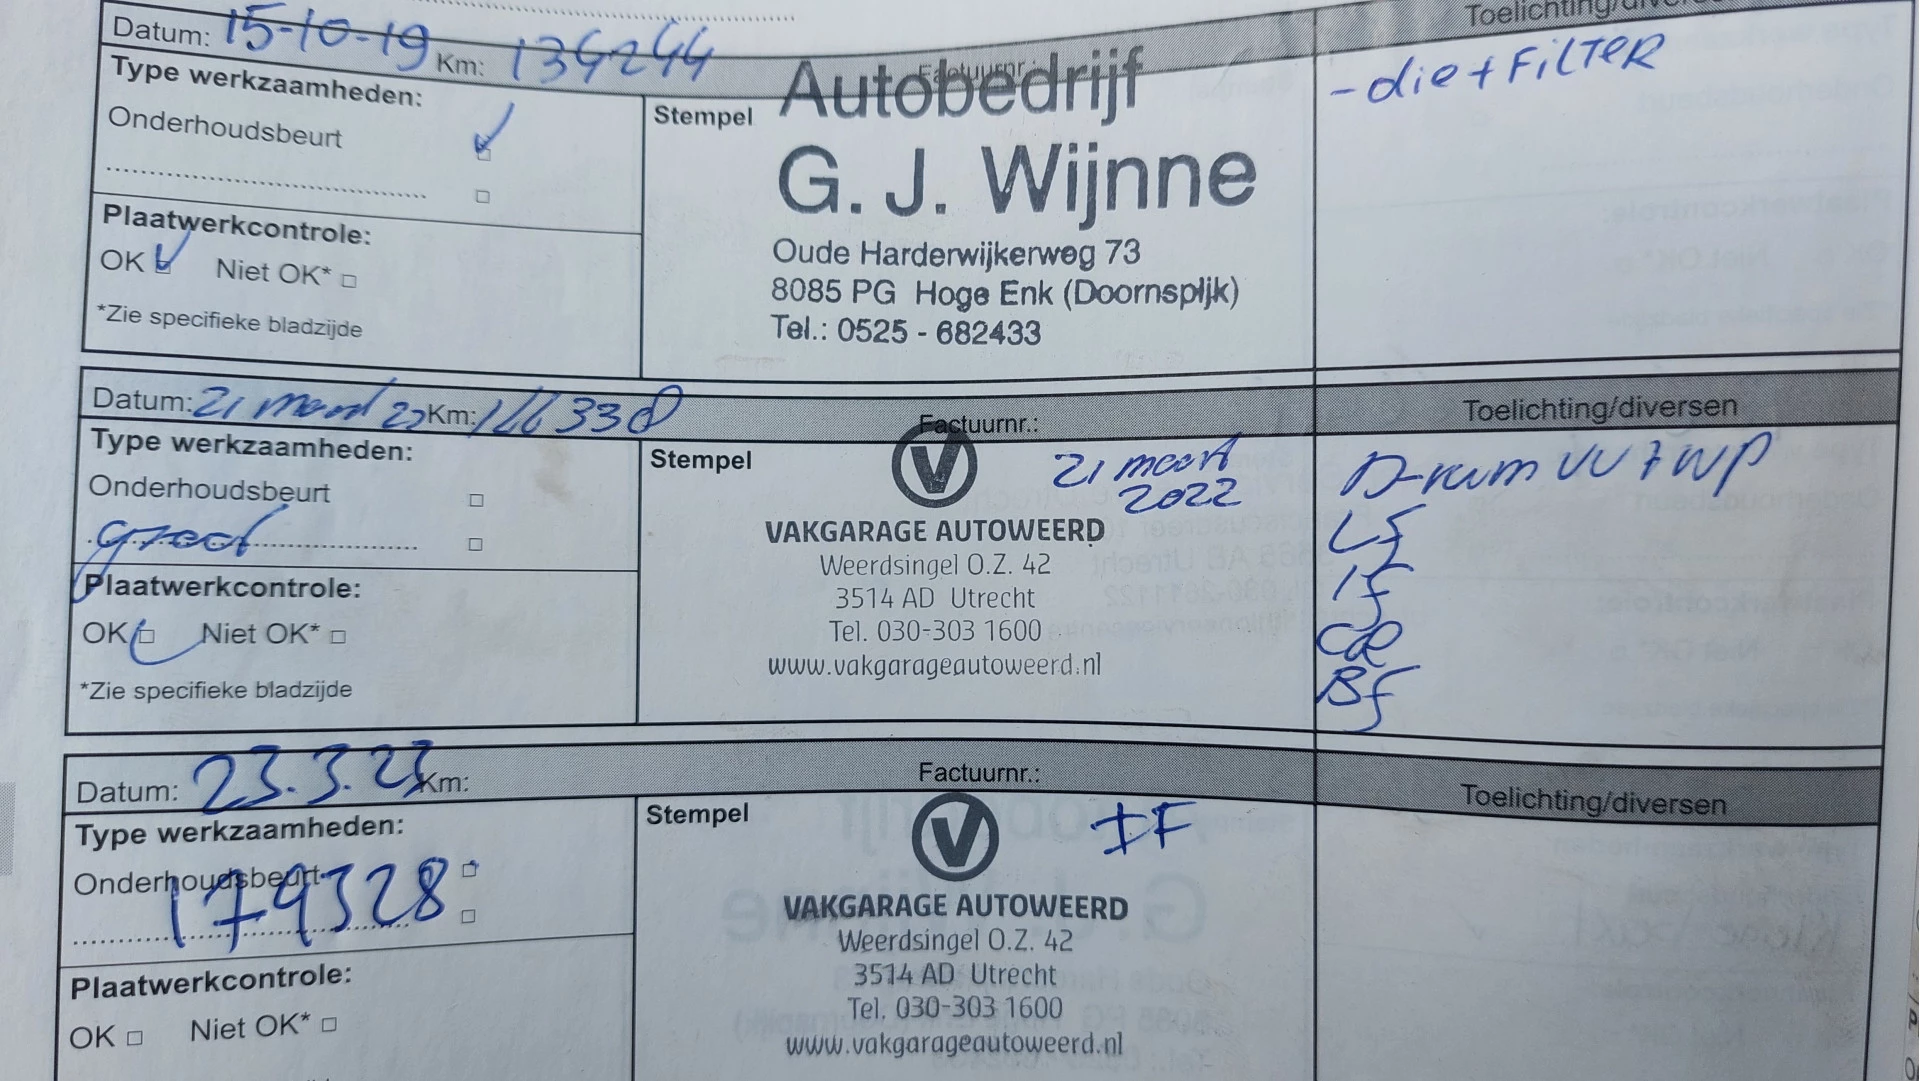 Toelichting/diversen
Datum: 15-10-19 Km: 134244 Factuurnr.:
Type werkzaamheden:
Onderhoudsbeurt
Stempel
Autobedrijf
G. J. Wijnne
Oude Harderwijkerweg 73
8085 PG Hoge Enk (Doornspijk)
Tel.: 0525 - 682433
- olie + FiLTER
Plaatwerkcontrole:
OK Niet OK*
*Zie specifieke bladzijde
Datum: 21 maart 22 Km: 166330 Factuurnr.: Toelichting/diversen
Type werkzaamheden:
Onderhoudsbeurt
groot
Stempel
21 maart
2022
VAKGARAGE AUTOWEERD
Weerdsingel O.Z. 42
3514 AD Utrecht
Tel. 030-303 1600
www.vakgarageautoweerd.nl
D-riem VV + WP
Lf
If
Oe
Bf
Plaatwerkcontrole:
OK Niet OK*
*Zie specifieke bladzijde
Datum: 23.3.23 Km: Factuurnr.: Toelichting/diversen
Type werkzaamheden:
Onderhoudsbeurt
179328
Stempel
IF
VAKGARAGE AUTOWEERD
Weerdsingel O.Z. 42
3514 AD Utrecht
Tel. 030-303 1600
www.vakgarageautoweerd.nl
Plaatwerkcontrole:
OK Niet OK*